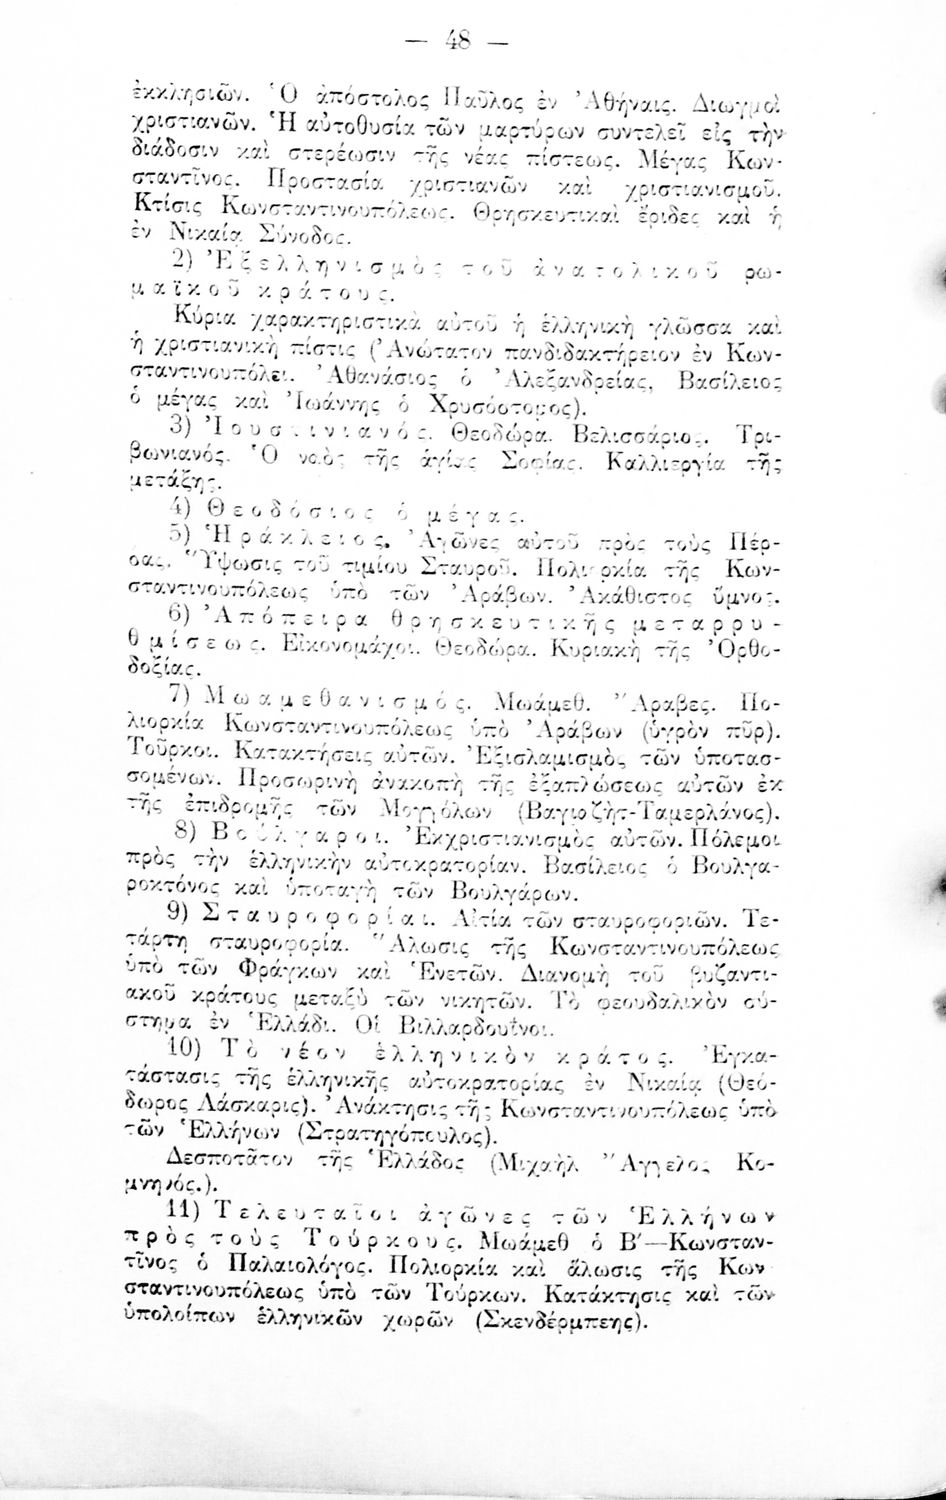 — 48 —
ἐκκλησιῶν. Ὁ ἀπόστολος Παῦλος ἐν Ἀθήναις. Διωγμοὶ
χριστιανῶν. Ἡ αὐτοθυσία τῶν μαρτύρων συντελεῖ εἰς τὴν
διάδοσιν καὶ στερέωσιν τῆς νέας πίστεως. Μέγας Κων-
σταντῖνος. Προστασία χριστιανῶν καὶ χριστιανισμοῦ.
Κτίσις Κωνσταντινουπόλεως. Θρησκευτικαὶ ἔριδες καὶ ἡ
ἐν Νικαίᾳ Σύνοδος.
2) Ἐξελληνισμὸς τοῦ ἀνατολικοῦ ρω-
μαϊκοῦ κράτους.
Κύρια χαρακτηριστικὰ αὐτοῦ ἡ ἑλληνικὴ γλῶσσα καὶ
ἡ χριστιανικὴ πίστις (Ἀνώτατον πανδιδακτήρειον ἐν Κων-
σταντινουπόλει. Ἀθανάσιος ὁ Ἀλεξανδρείας, Βασίλειος
ὁ μέγας καὶ Ἰωάννης ὁ Χρυσόστομος).
3) Ἰουστινιανός. Θεοδώρα. Βελισσάριος. Τρι-
βωνιανός. Ὁ ναὸς τῆς ἁγίας Σοφίας. Καλλιεργία τῆς
μετάξης.
4) Θεοδόσιος ὁ μέγας.
5) Ἡράκλειος. Ἀγῶνες αὐτοῦ πρὸς τοὺς Πέρ-
σας. Ὕψωσις τοῦ τιμίου Σταυροῦ. Πολιορκία τῆς Κων-
σταντινουπόλεως ὑπὸ τῶν Ἀράβων. Ἀκάθιστος ὕμνος.
6) Ἀπόπειρα θρησκευτικῆς μεταρρυ-
θμίσεως. Εἰκονομάχοι. Θεοδώρα. Κυριακὴ τῆς Ὀρθο-
δοξίας.
7) Μωαμεθανισμός. Μωάμεθ. Ἄραβες. Πο-
λιορκία Κωνσταντινουπόλεως ὑπὸ Ἀράβων (ὑγρὸν πῦρ).
Τοῦρκοι. Κατακτήσεις αὐτῶν. Ἐξισλαμισμὸς τῶν ὑποτασ-
σομένων. Προσωρινὴ ἀνακοπὴ τῆς ἐξαπλώσεως αὐτῶν ἐκ
τῆς ἐπιδρομῆς τῶν Μογγόλων (Βαγιαζὴτ-Ταμερλάνος).
8) Βούλγαροι. Ἐκχριστιανισμὸς αὐτῶν. Πόλεμοι
πρὸς τὴν ἑλληνικὴν αὐτοκρατορίαν. Βασίλειος ὁ Βουλγα-
ροκτόνος καὶ ὑποταγὴ τῶν Βουλγάρων.
9) Σταυροφορίαι. Αἰτία τῶν σταυροφοριῶν. Τε-
τάρτη σταυροφορία. Ἅλωσις τῆς Κωνσταντινουπόλεως
ὑπὸ τῶν Φράγκων καὶ Ἑνετῶν. Διανομὴ τοῦ βυζαντι-
ακοῦ κράτους μεταξὺ τῶν νικητῶν. Τὸ φεουδαλικὸν σύ-
στημα ἐν Ἑλλάδι. Οἱ Βιλλαρδουῖνοι.
10) Τὸ νέον ἑλληνικὸν κράτος. Ἐγκα-
τάστασις τῆς ἑλληνικῆς αὐτοκρατορίας ἐν Νικαίᾳ (Θεό-
δωρος Λάσκαρις). Ἀνάκτησις τῆς Κωνσταντινουπόλεως ὑπὸ
τῶν Ἑλλήνων (Στρατηγόπουλος).
Δεσποτᾶτον τῆς Ἑλλάδος (Μιχαὴλ Ἄγγελος Κο-
μνηνός.).
11) Τελευταῖοι ἀγῶνες τῶν Ἑλλήνων
πρὸς τοὺς Τούρκους. Μωάμεθ ὁ Β′—Κωνσταν-
τῖνος ὁ Παλαιολόγος. Πολιορκία καὶ ἅλωσις τῆς Κων
σταντινουπόλεως ὑπὸ τῶν Τούρκων. Κατάκτησις καὶ τῶν
ὑπολοίπων ἑλληνικῶν χωρῶν (Σκενδέρμπεης).